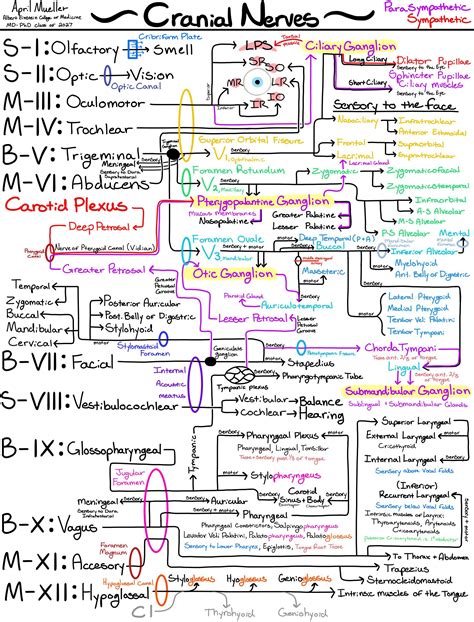 April Mueller
Albert Einstein College of Medicine
MD-PhD class of 2027
Cranial Nerves
ParaSympathetic
Sympathetic
Cribriform Plate
S-I: Olfactory
Smell
S-II: Optic
Vision
Optic Canal
M-III: Oculomotor
M-IV: Trochlear
B-V: Trigeminal
M-VI: Abducens
LPS
SR
SO
MR
LR
IR
IO
Ciliary Ganglion
Long Ciliary
Dilator Pupillae
Dilator to the Eye
Short Ciliary
Sphincter Pupillae
Ciliary muscles
Sensory to the Eye
Sensory to the face
Nasociliary
Infratrochlear
Anterior Ethmoidal
Superior Orbital Fissure
V1, Ophthalmic
Frontal
Supraorbital
Supratrochlear
Lacrimal
Lacrimal Gland
Meningeal
Sensory to Dura,
Sensory
Foramen Rotundum
V2, Maxillary
Zygomatic
Zygomaticofacial
Zygomaticotemporal
Infraorbital
A-S Alveolar
M-S Alveolar
P-S Alveolar
Carotid Plexus
Deep Petrosal
Pterygopalantine Ganglion
Mucous Membranes
Nasopalantine
Greater Palatine
Lesser Palatine
Pterygoid Canal
Nerve of Pterygoid Canal (Vidian)
Greater Petrosal
Foramen Ovale
V3, Mandibular
Sensory + motor
Deep Temporal (P+A)
Buccal
Masseteric
Mental
Inferior Alveolar
Mylohyoid
Ant. Belly of Digastric
Otic Ganglion
Parotid Gland
Auriculotemporal
Lesser Petrosal
Lateral Pterygoid
Medial Pterygoid
Tensor Veli Palatini
Tensor Tympani
Temporal
Zygomatic
Buccal
Mandibular
Cervical
Posterior Auricular
Post. Belly of Digastric
Stylohyoid
Stylomastoid
Foramen
Geniculate
ganglion
Petrotympanic Fissure
Chorda Tympani
Taste ant. 2/3 of Tongue
Lingual
Submandibular Ganglion
Sublingual + Submandibular Glands
B-VII: Facial
Stapedius
Pharyngotympanic Tube
Internal
Acoustic
meatus
Tympanic plexus
S-VIII: Vestibulocochlear
Vestibular
Balance
Cochlear
Hearing
Tympanic
B-IX: Glossopharyngeal
Pharyngeal Plexus
Pharyngeal, Lingual, Tonsillar
Stylopharyngeus
Carotid
Sinus + Body
Jugular
Foramen
Superior Laryngeal
External Laryngeal
Cricothyroid
Internal Laryngeal
Sensory above Vocal Folds
(Inferior)
Recurrent Laryngeal
Sensory below Vocal Folds
Intrinsic muscles of Larynx:
Meningeal
Auricular
Pharyngeal
Sensory to Lower Pharynx, Epiglottis, Tongue Root Taste
B-X: Vagus
To Thorax + Abdomen
Foramen
Magnum
M-XI: Accesory
Trapezius
Sternocleidomastoid
Hypoglossal Canal
Styloglossus
Hyoglossus
Genioglossus
M-XII: Hypoglossal
Intrinsic muscles of the Tongue
C1
Thyrohyoid
Geniohyoid